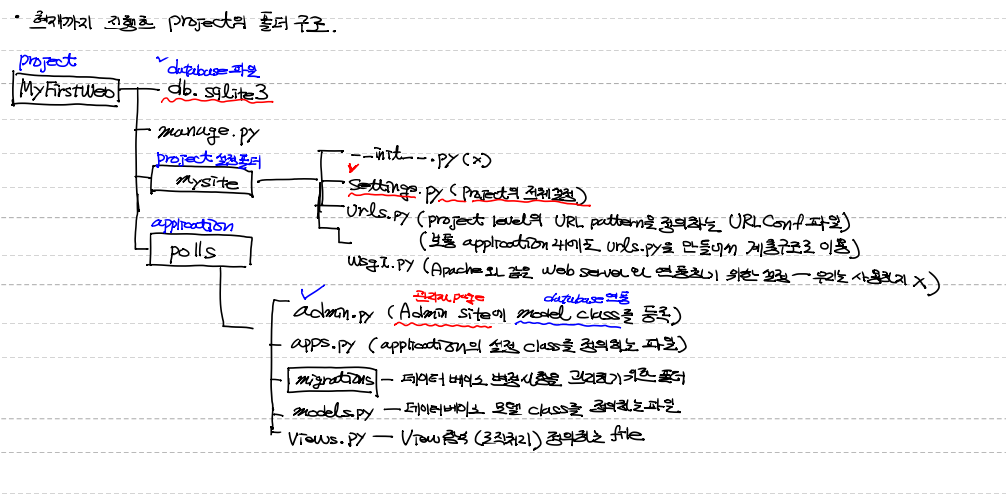 · 현재까지 진행한 project의 폴더 구조.
project
MyFirstWeb
✓ database 파일
db.sqlite3
manage.py
project 설정폴더
mysite
__init__.py (x)
✓ settings.py (project의 전체설정)
urls.py (project level의 URL pattern을 정의하는 URLConf 파일)
(보통 application 내에도 urls.py를 만들어서 계층구조로 이용)
wsgi.py (Apache와 같은 web server와 연동하기 위한 설정 - 우리는 사용하지 X)
application
polls
✓ 관리자 page
database 연동
admin.py (Admin site에 model class를 등록)
apps.py (application의 설정 class를 정의하는 파일)
migrations - 데이터베이스 변경사항을 관리하기 위한 폴더
models.py - 데이터베이스 모델 class를 정의하는 파일
views.py - View 함수 (로직처리) 정의하는 file